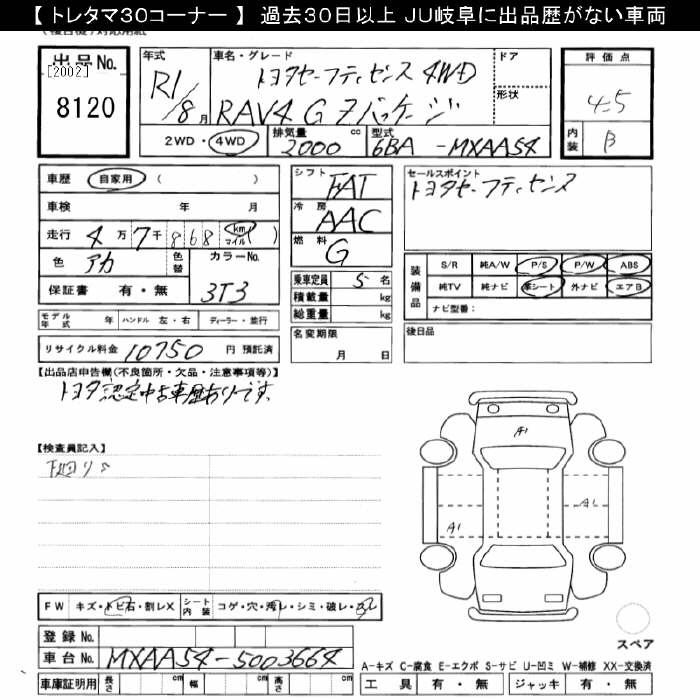 【トレタマ30コーナー】 過去30日以上 JU岐阜に出品歴がない車両
出品No.
[2002]
8120
年式
R1/8月
車名・グレード
トヨタセーフティセンス 4WD
RAV4 G Zパッケージ
ドア
形状
評価点
4.5
内装 B
2WD・4WD
排気量 2000 cc
型式 6BA-MXAA54
車歴 自家用 ( )
車検 年 月
走行 4万7千868 km マイル ( )
色 アカ 色替
カラーNo. 3T3
保証書 有・無
モデル年式 年 ハンドル 左・右 ディーラー・並行
リサイクル料金 10750 円 預託済
シフト FAT
冷房 AAC
燃料 G
乗車定員 5 名
積載量 kg
総重量 kg
名変期限
月 日
セールスポイント
トヨタセーフティセンス
装備品
S/R 純A/W P/S P/W ABS
純TV 純ナビ 革シート 外ナビ エアB
ナビ型番:
後日品
【出品店申告欄(不良箇所・欠品・注意事項等)】
トヨタ認定中古車歴ありです。
【検査員記入】
下廻りS
A1
A1
A1
FW キズ・トビ石・割レX
シート内装 コゲ・穴・汚レ・シミ・破レ・
登録No.
車台No. MXAA54-5003664
車庫証明用 長さ cm 幅 cm 高さ cm
スペア
A-キズ C-腐食 E-エクボ S-サビ U-凹ミ W-補修 XX-交換済
工具 有・無 ジャッキ 有・無